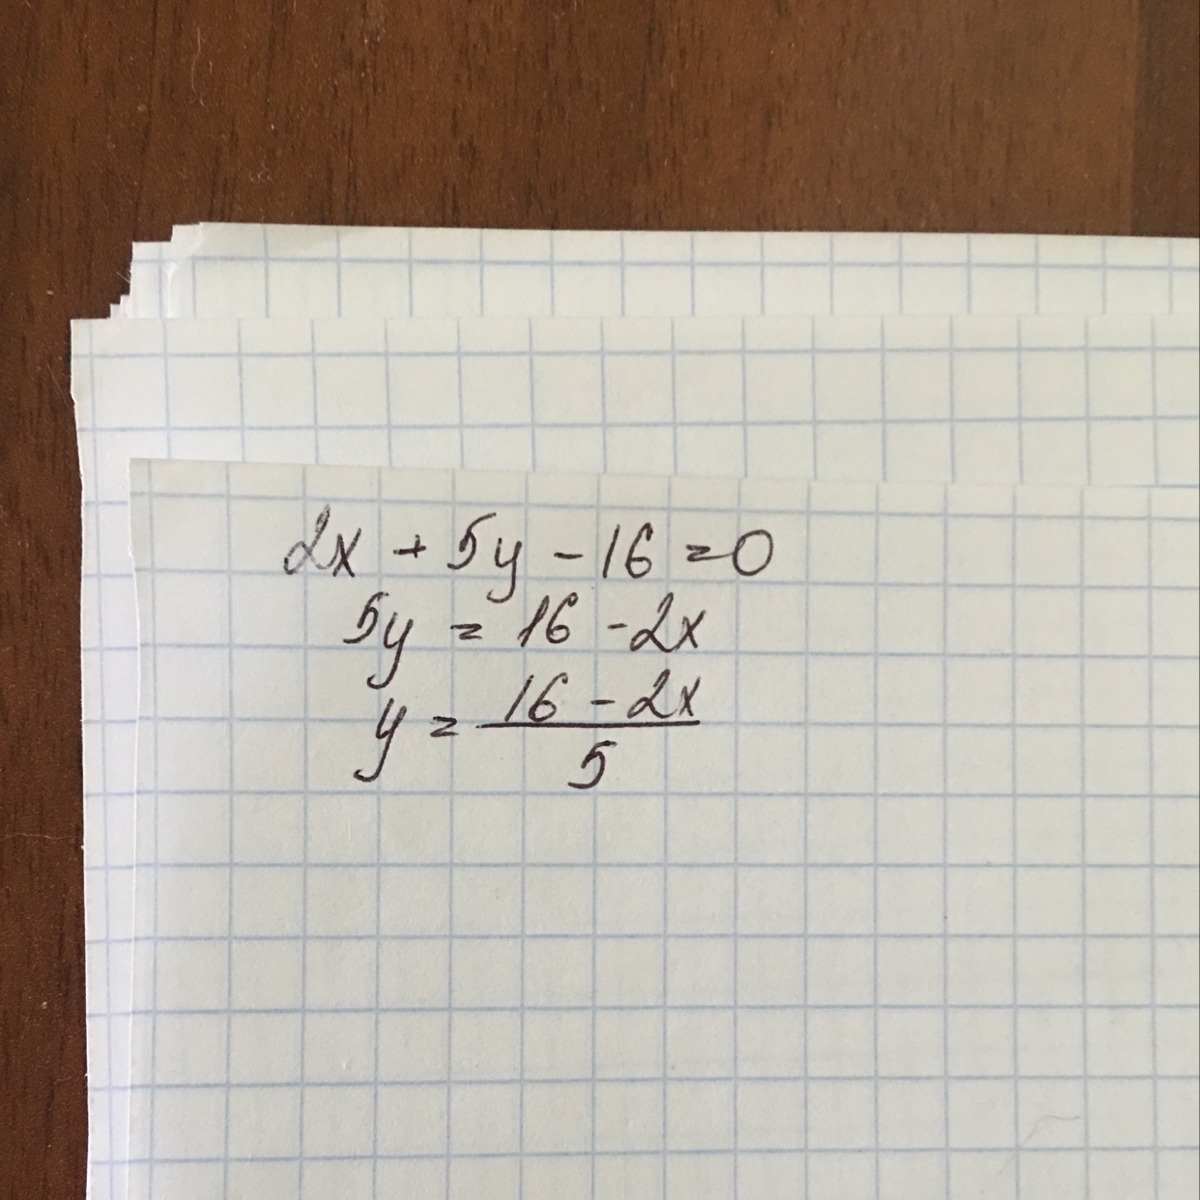 2x + 5y - 16 = 0
5y = 16 - 2x
y = \frac{16 - 2x}{5}